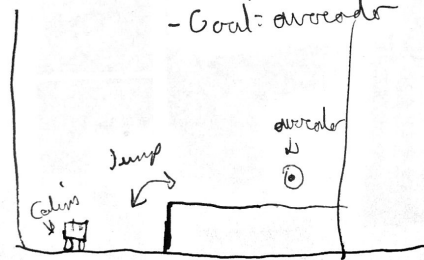 - Goal: avocado
avocado
Jump